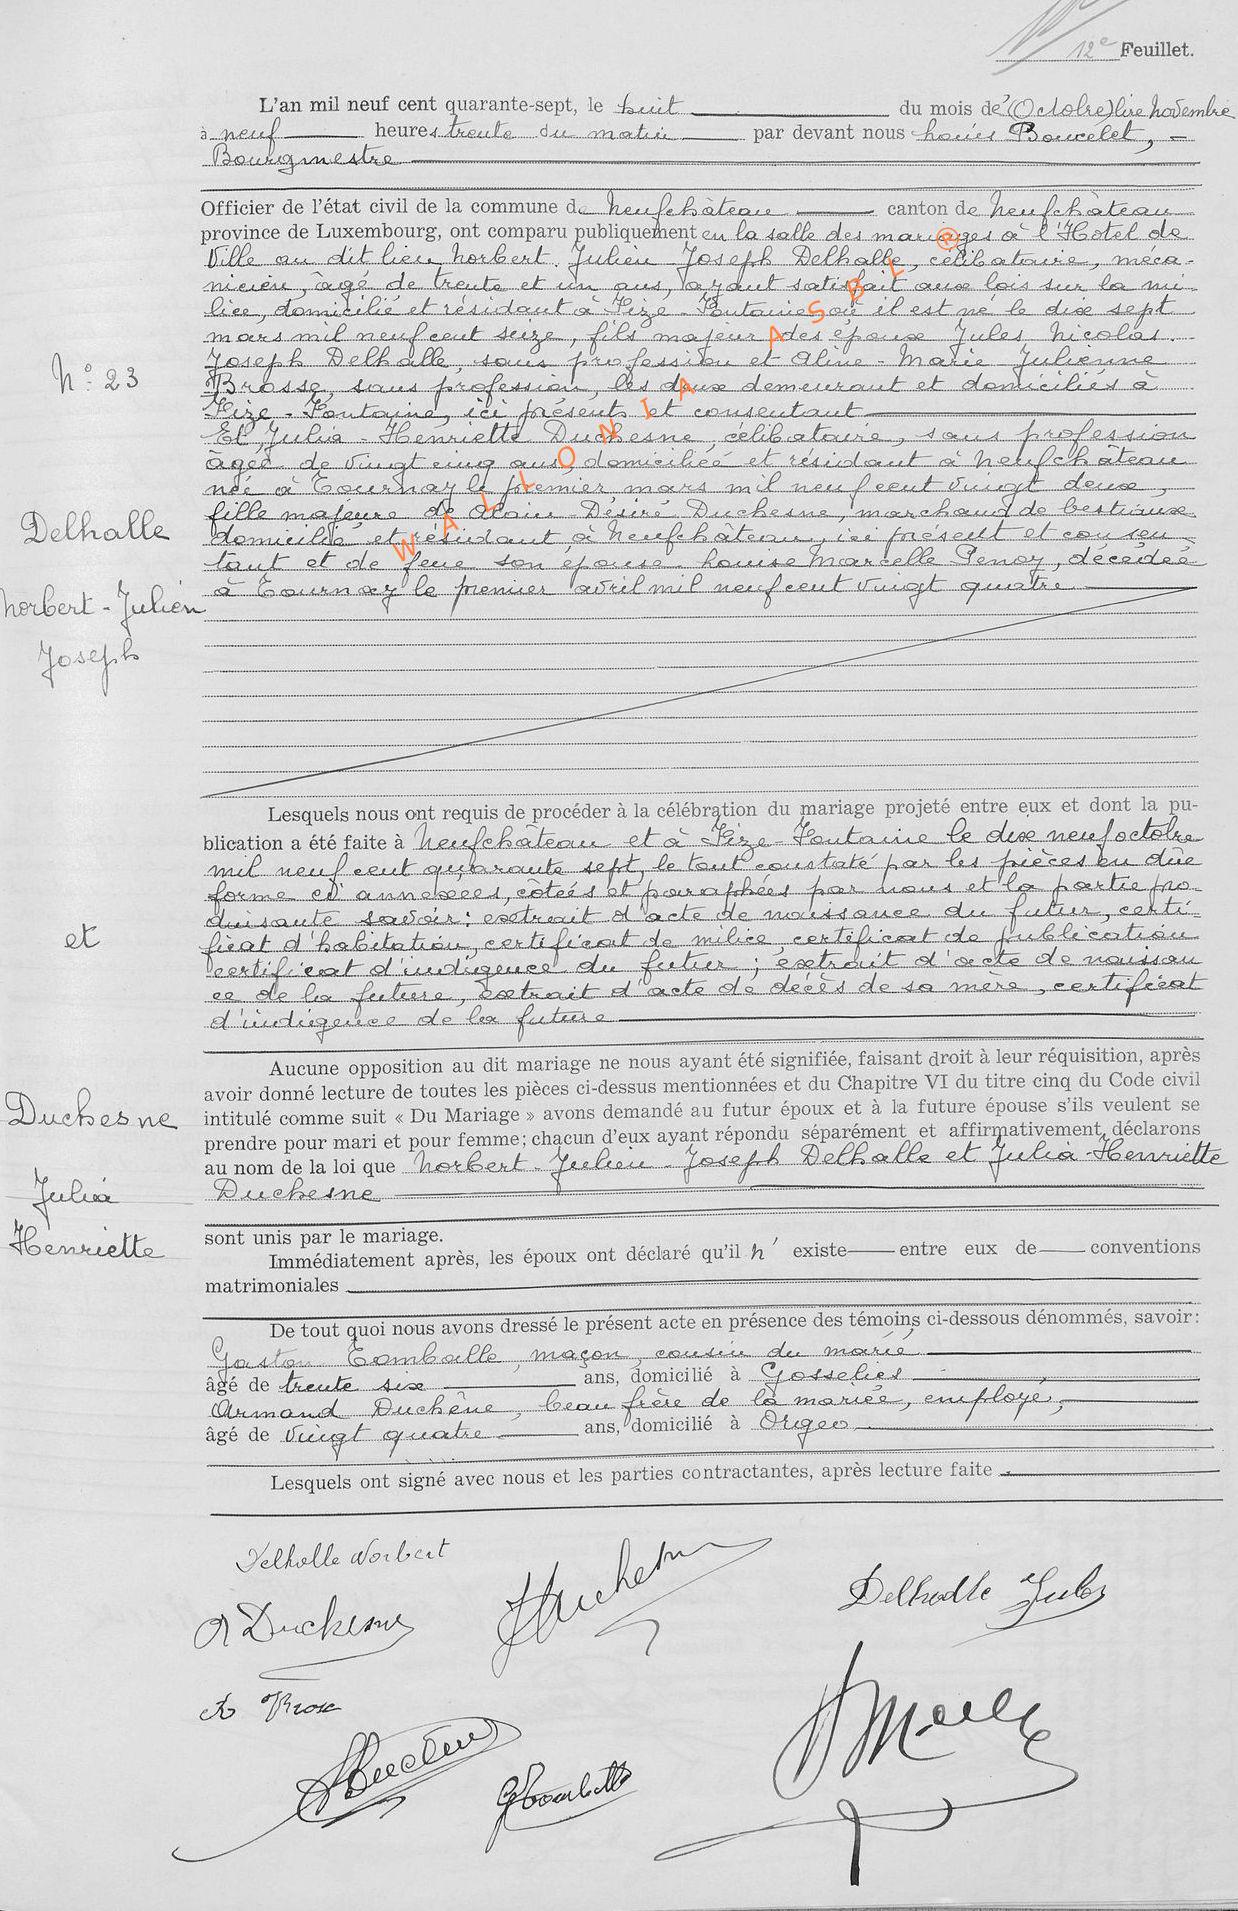 12e Feuillet.
L'an mil neuf cent quarante-sept, le huit du mois de (Octobre) lire Novembre
à neuf heures trente du matin par devant nous Louis Bourcelet,
Bourgmestre
Officier de l'état civil de la commune de Neufchâteau canton de Neufchâteau
province de Luxembourg, ont comparu publiquement en la salle des mariages à l'Hôtel de
Ville au dit lieu Norbert-Julien-Joseph Delhalle, célibataire, méca-
nicien, âgé de trente et un ans, ayant satisfait aux lois sur la mi-
lice, domicilié et résidant à Fize-Fontaine où il est né le dix sept
mars mil neuf cent seize, fils majeur des époux Jules Nicolas
Joseph Delhalle, sans profession et Aline-Marie-Julienne
Brosse, sans profession, les deux demeurant et domiciliés à
Fize-Fontaine, ici présents et consentant
Et Julia-Henriette Duchesne, célibataire, sans profession
âgée de vingt cinq ans, domiciliée et résidant à Neufchâteau
née à Tournay le premier mars mil neuf cent vingt deux,
fille majeure de Désiré Duchesne, marchand de bestiaux
domicilié et résidant à Neufchâteau, ici présent et consen-
tant et de feue son épouse Louise Marcelle Penoy, décédée
à Tournay le premier avril mil neuf cent vingt quatre
N° 23
Delhalle
Norbert-Julien
Joseph
et
Duchesne
Julia
Henriette
WALLONIA ASBL ®
Lesquels nous ont requis de procéder à la célébration du mariage projeté entre eux et dont la pu-
blication a été faite à Neufchâteau et à Fize-Fontaine le dix neuf octobre
mil neuf cent quarante sept, le tout constaté par les pièces en due
forme ci annexées, côtées et paraphées par nous et la partie pro-
duisante savoir: extrait d'acte de naissance du futur, certi-
ficat d'habitation, certificat de milice, certificat de publication
certificat d'indigence du futur; extrait d'acte de naissan
ce de la future, extrait d'acte de décès de sa mère, certificat
d'indigence de la future
Aucune opposition au dit mariage ne nous ayant été signifiée, faisant droit à leur réquisition, après
avoir donné lecture de toutes les pièces ci-dessus mentionnées et du Chapitre VI du titre cinq du Code civil
intitulé comme suit « Du Mariage » avons demandé au futur époux et à la future épouse s'ils veulent se
prendre pour mari et pour femme; chacun d'eux ayant répondu séparément et affirmativement, déclarons
au nom de la loi que Norbert-Julien-Joseph Delhalle et Julia-Henriette
Duchesne
sont unis par le mariage.
Immédiatement après, les époux ont déclaré qu'il n'existe entre eux de conventions
matrimoniales
De tout quoi nous avons dressé le présent acte en présence des témoins ci-dessous dénommés, savoir:
Gaston Tomballe, maçon, cousin du marié
âgé de trente six ans, domicilié à Gosselies
Armand Duchêne, beau frère de la mariée, employé,
âgé de vingt quatre ans, domicilié à Orgeo
Lesquels ont signé avec nous et les parties contractantes, après lecture faite
Delhalle Norbert
JDuchesne
Delhalle Jules
A Duchesne